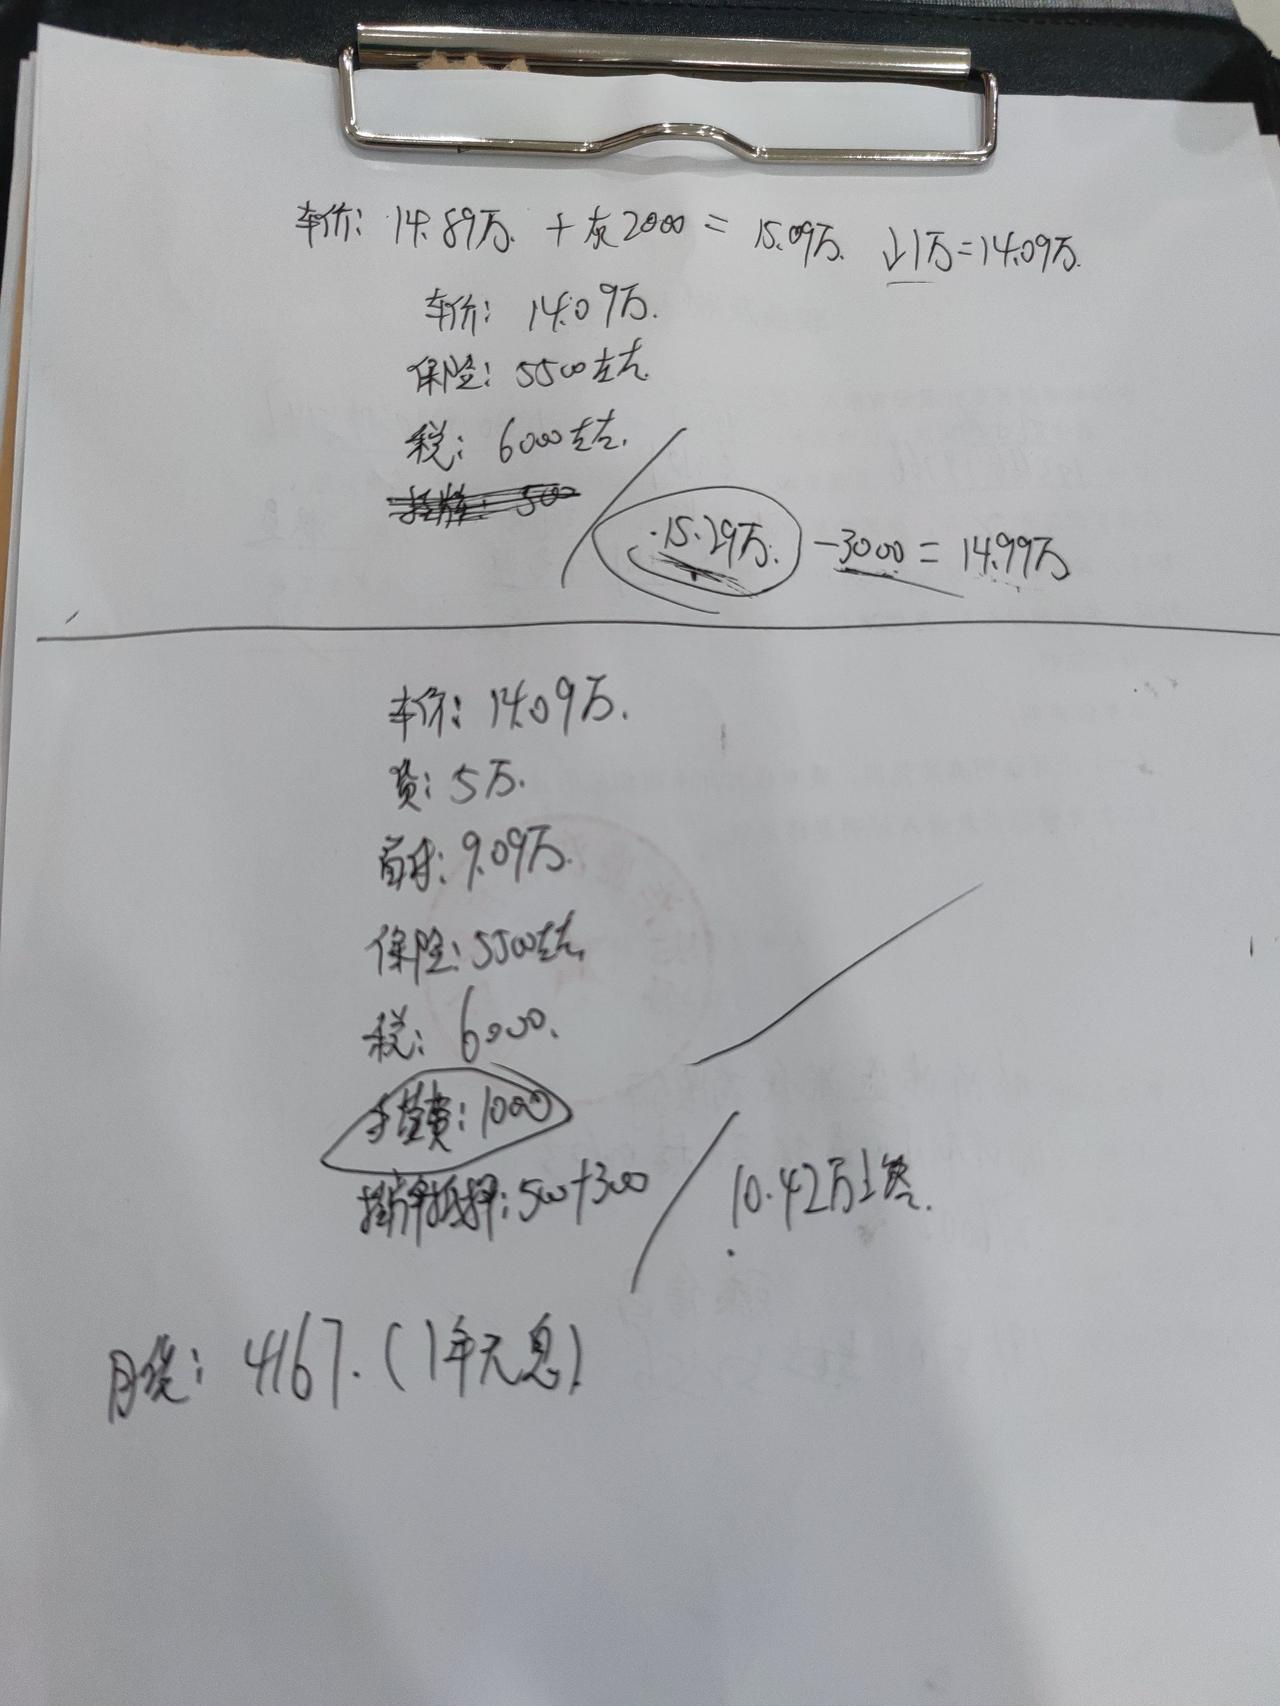 车价: 14.89万. + 灰2000 = 15.09万. ↓1万=14.09万.
车价: 14.09万.
保险: 5500左右
税: 6000左右.
挂牌: 500
15.29万. -3000 = 14.99万
车价: 14.09万.
贷: 5万.
首付: 9.09万.
保险: 5500左右
税: 6000.
手续费: 1000
挂牌抵押: 500+300
10.42万
月供: 4167. (1年无息)